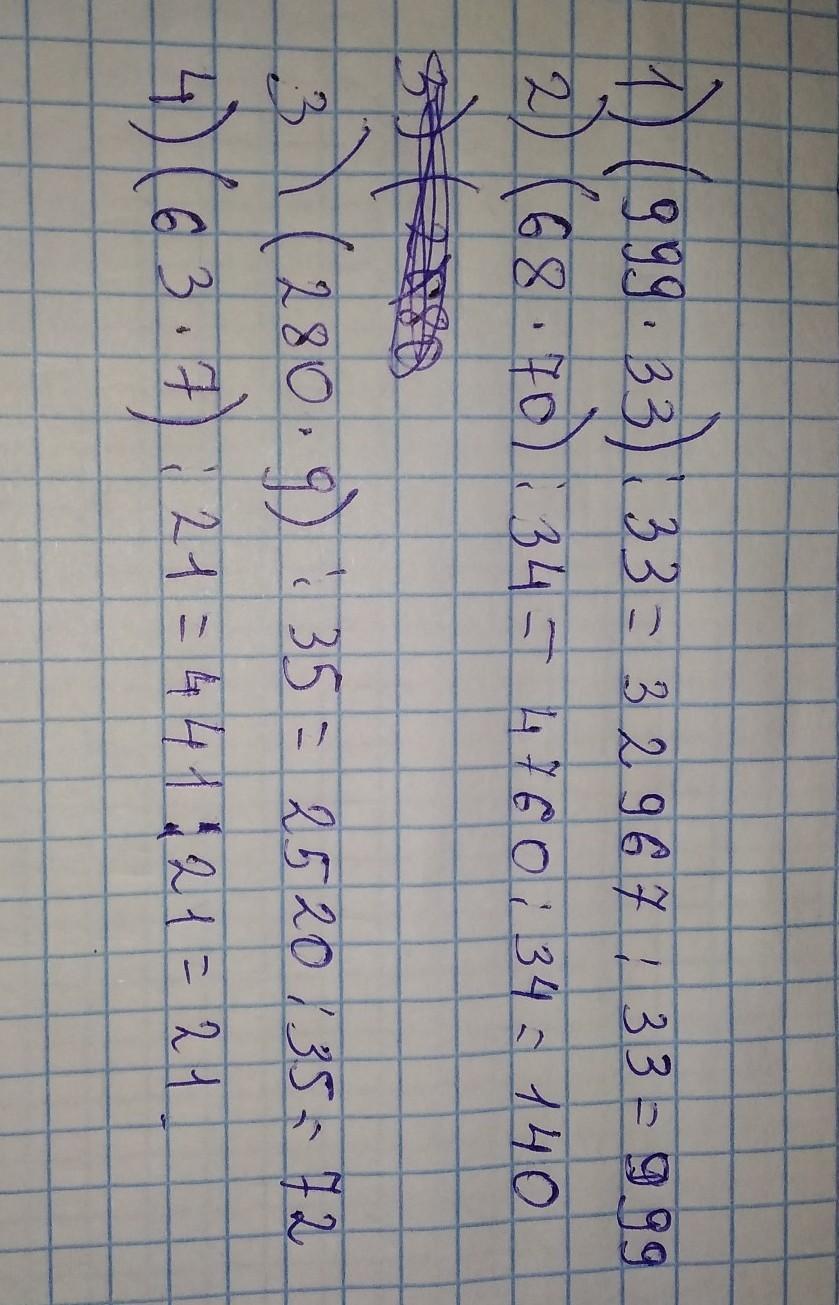 1) (999 · 33) : 33 = 32967 : 33 = 999
2) (68 · 70) : 34 = 4760 : 34 = 140
3) (280 · 9) : 35 = 2520 : 35 = 72
4) (63 · 7) : 21 = 441 : 21 = 21